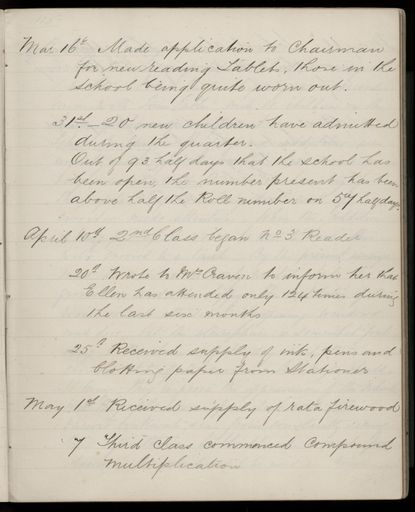 Mar 16th Made application to Chairman
for new reading Tablets, those in the
school being quite worn out.
31st — 20 new children have admitted
during the quarter.
Out of 93 half days that the school has
been open, the number present has been
above half the Roll number on 54 half days.
April 10th 2nd Class began No 3 Reader
20th Wrote to Mrs Craven to inform her that
Ellen has attended only 124 times during
the last six months
25th Received supply of ink, pens and
blotting paper from Stationer
May 1st Received supply of rata firewood
7 Third class commenced Compound
Multiplication